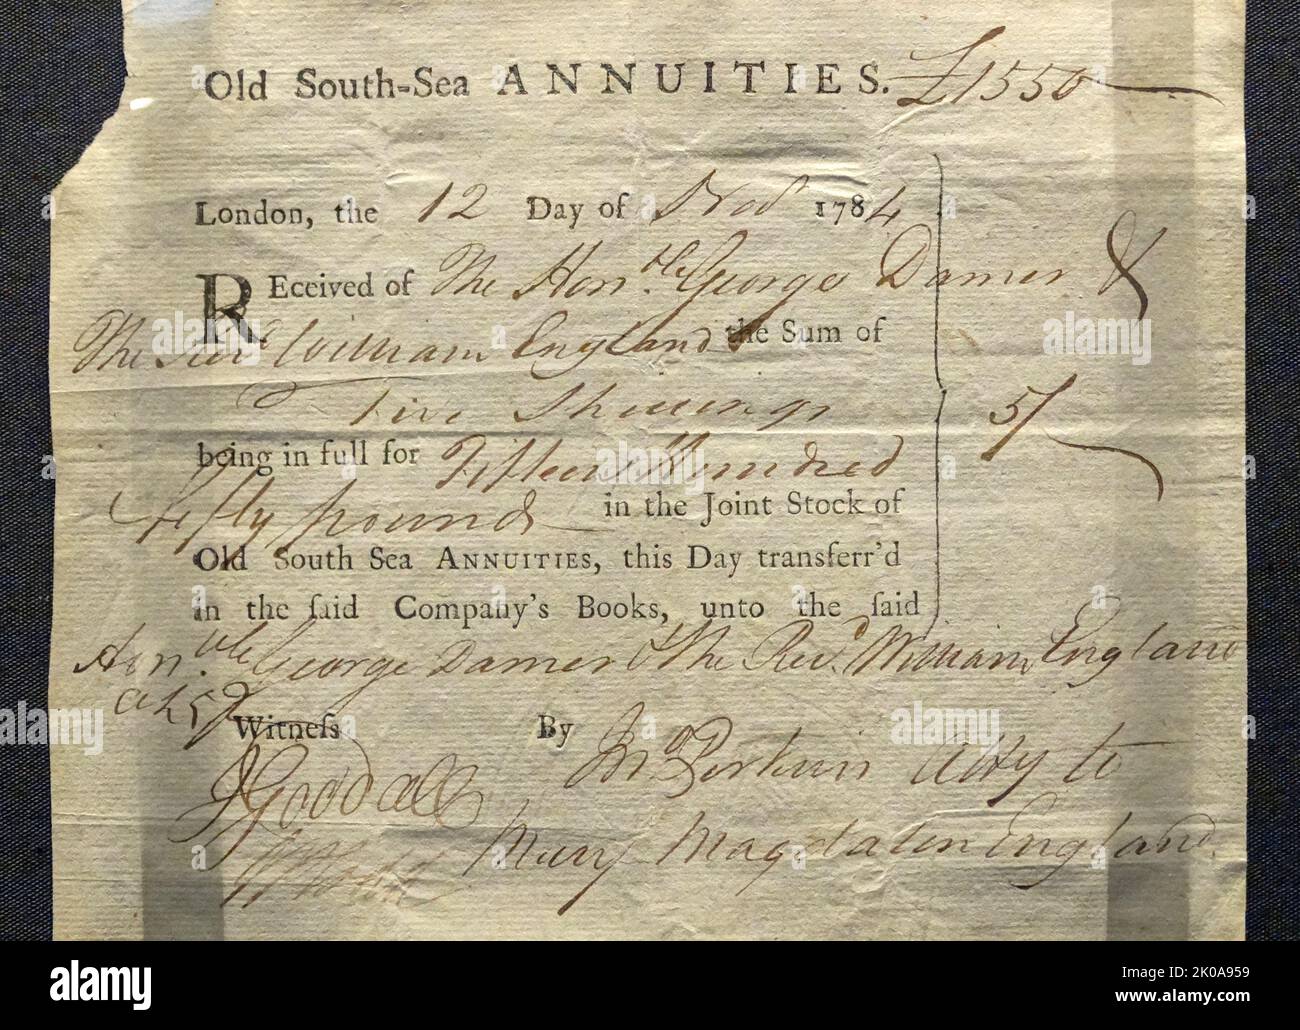 Old South-Sea ANNUITIES. £1550
London, the 12 Day of Novr 1784
REceived of The Honble George Damer &
The Revd William England the Sum of
Five Shillings 5/
being in full for Fifteen Hundred
Fifty pounds in the Joint Stock of
Old South Sea ANNUITIES, this Day transferr'd
in the ſaid Company's Books, unto the ſaid
Honble George Damer & the Revd William England
Witneſs By Jno Perkins Atty to
J Goodall
Mary Magdalen England
alamy
Image ID: 2K0A959
www.alamy.com